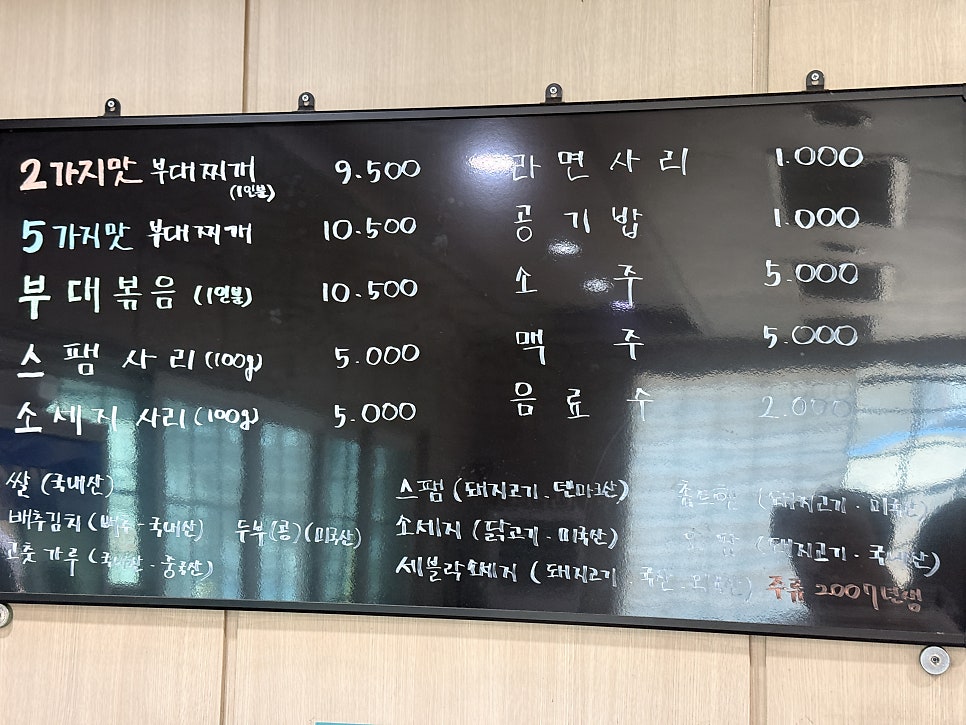 2가지맛 부대찌개 9.500
(1인분)
5가지맛 부대찌개 10.500
부대볶음 (1인분) 10.500
스팸사리 (100g) 5.000
소세지사리 (100g) 5.000
라면사리 1.000
공기밥 1.000
소주 5.000
맥주 5.000
음료수 2.000
쌀 (국내산)
배추김치 (배추-국내산) 두부(콩) (미국산)
고춧가루 (국내산-중국산)
스팸 (돼지고기-덴마크산)
소세지 (닭고기-미국산)
세블락소세지 (돼지고기
(돼지고기-미국산)
(돼지고기-국내산)
주류 2007년생